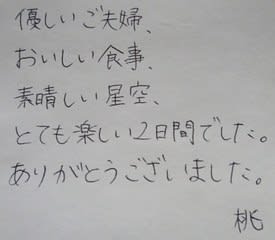 優しいご夫婦、
おいしい食事、
素晴しい星空、
とても楽しい2日間でした。
ありがとうございました。
桃